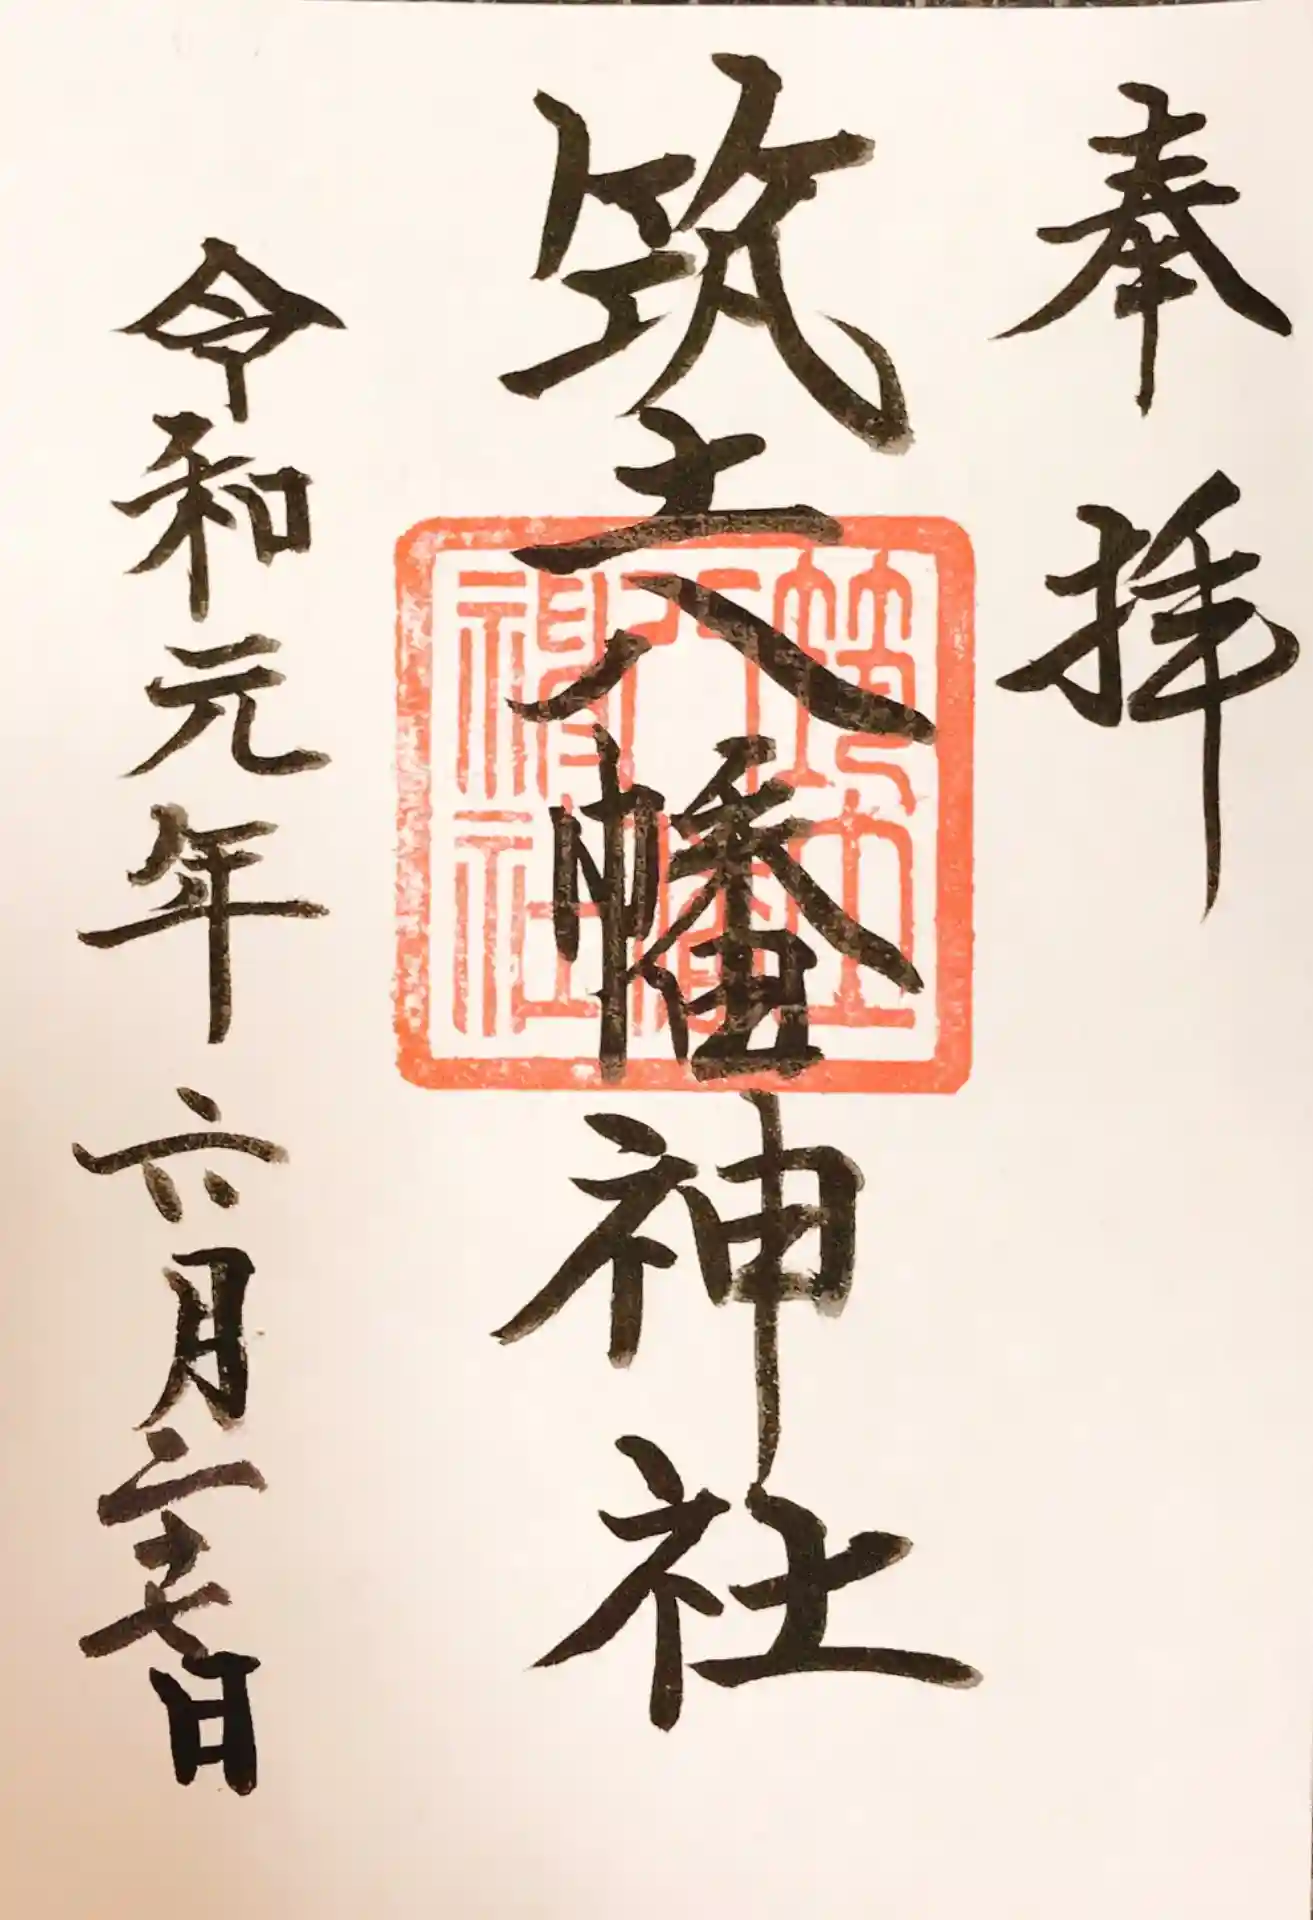 奉拝
筑土八幡神社
筑土八幡神社
令和元年六月二十七日